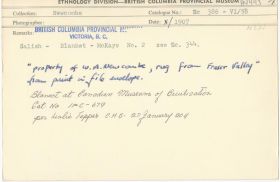 ETHNOLOGY DIVISION—BRITISH COLUMBIA PROVINCIAL MUSEUM
Collection: Newcombe Catalogue No: Nc 386 - VI/58
Photographer: Date: x/1907
Remarks: BRITISH COLUMBIA PROVINCIAL
VICTORIA, B.C.
Salish - Blanket - McKays No. 2 see Nc. 344.
"property of W.A. Newcombe, rug from Fraser Valley"
from print in file envelope.
Blanket at Canadian Museum of Civilization
Cat No II-C-679
per Leslie Tepper C.M.C. 27 January 2004